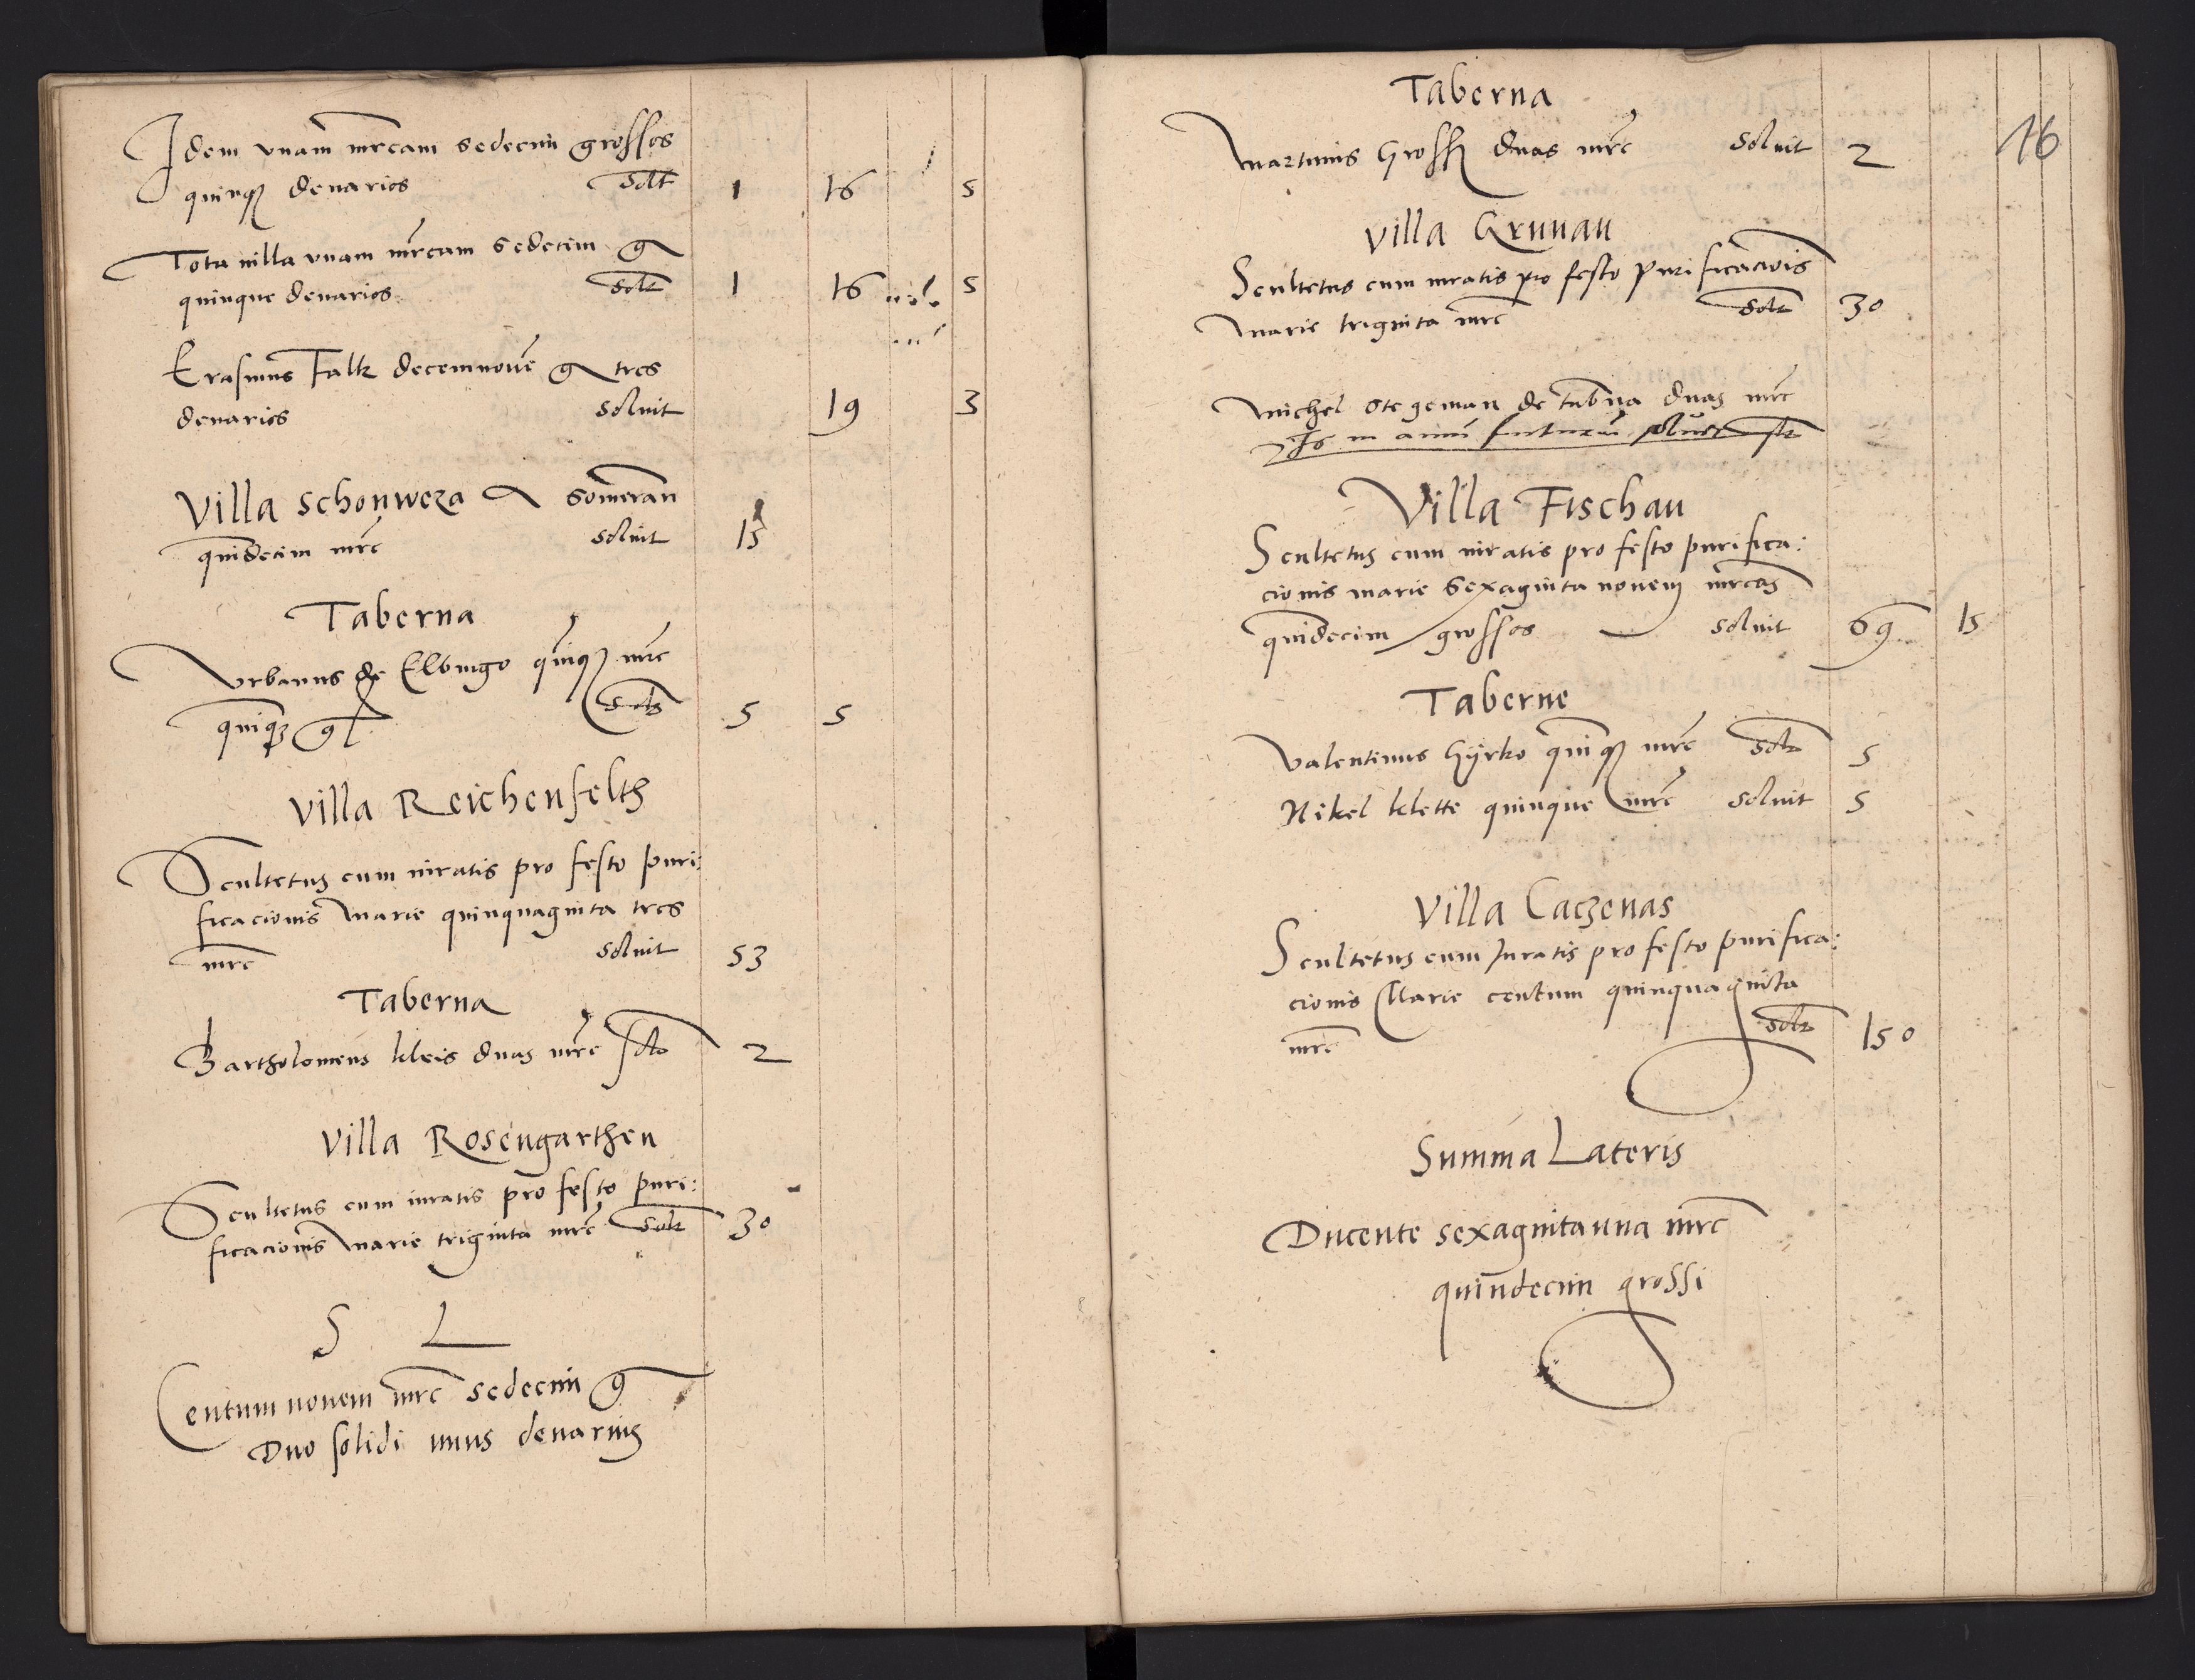 Idem vnam mrcam sedecim grossos
quinqz denarios solt 1 16 5
Tota villa vnam mrcam sedecim g
quinque denarios solt 1 16 5
Erasmus Falk decemnove g tres
denarios soluit 19 3
Villa schonweza someran
quidecim mrc soluit 15
Taberna
Vrbanus de Elbingo quiqz mrc
quiqz g solt 5 5
Villa Reichenfelth
Scultetus cum iuratis pro festo puri:
ficacionis marie quinquaginta tres
mrc soluit 53
Taberna
Bartholomeus kleis duas mrc solt 2
Villa Rosengarthen
Scultetus cum iuratis pro festo puri:
ficacionis marie triginta mrc solt 30
S L
Centum novem mrc sedecim g
Duo solidi unus denarius
16
Taberna
Martinus Gross duas mrc Soluit 2
Villa Grunau
Scultetus cum iuratis pro festo purificacionis
marie triginta mrc solt 30
Michel Stegeman de tabna duas mrc
in annu futurum
Villa Fischau
Scultetus cum iuratis pro festo purifica:
cionis marie sexaginta novem mrcas
quidecim grossos soluit 69 15
Taberne
Valentinus Gyrko quiqz mrc solt 5
Nikel klette quinque mrc Soluit 5
Villa Caczenas
Scultetus cum Iuratis pro festo purifica:
cionis Marie centum quinquaginta
mrc solt 150
Summa Lateris
Ducente sexaginta una mrc
quindecim grossi